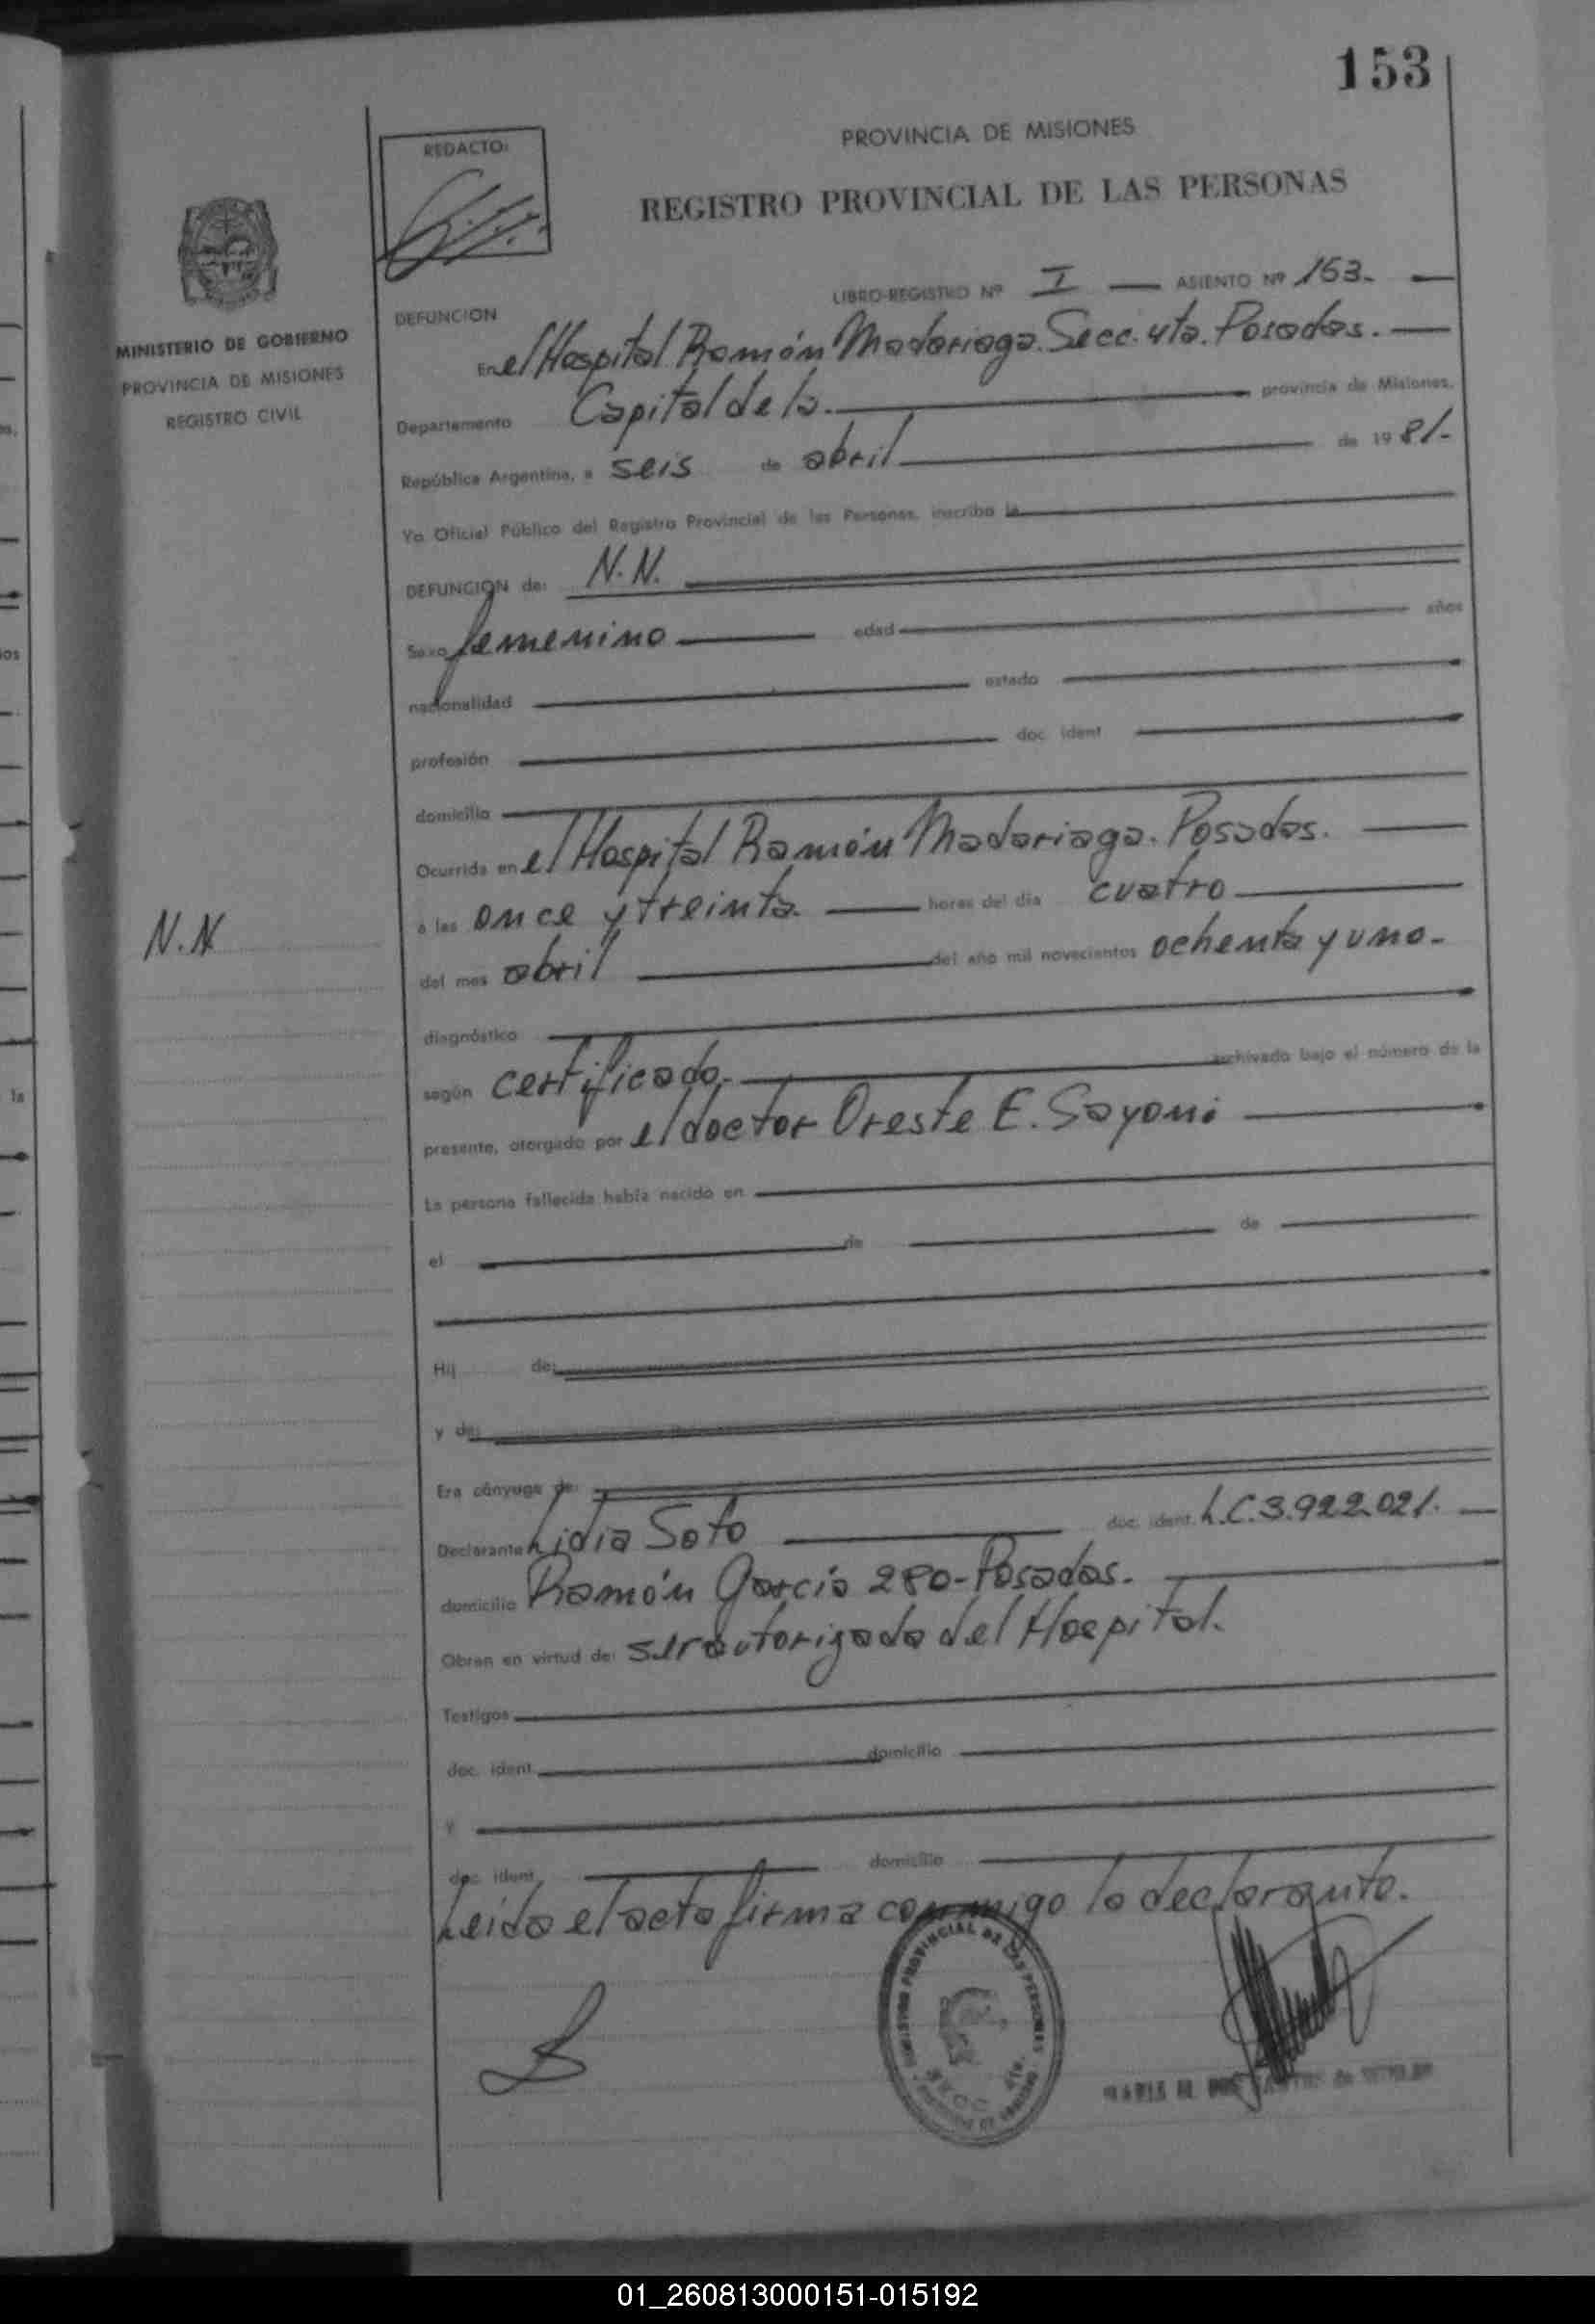 153
PROVINCIA DE MISIONES
REGISTRO PROVINCIAL DE LAS PERSONAS
REDACTO:
MINISTERIO DE GOBIERNO
PROVINCIA DE MISIONES
REGISTRO CIVIL
LIBRO-REGISTRO Nº I — ASIENTO Nº 153.
DEFUNCION
En el Hospital Ramón Madariaga. Secc. 4ta. Posadas.
Departamento Capital de la. provincia de Misiones,
República Argentina, a seis de abril de 1981.
Yo Oficial Público del Registro Provincial de las Personas, inscribo la
DEFUNCION de: N.N.
Sexo femenino edad años
nacionalidad estado
profesión doc. ident
domicilio
Ocurrida en el Hospital Ramón Madariaga. Posadas.
a las once y treinta. horas del día cuatro
N.N
del mes abril del año mil novecientos ochenta y uno.
diagnóstico
según certificado. archivado bajo el número de la
presente, otorgado por el doctor Oreste E. Sayoni
La persona fallecida había nacido en
el de de
Hij de:
y de:
Era cónyuge de:
Declarante Lidia Soto doc. ident. L.C.3.922.021.
domicilio Ramón García 280-Posadas.
Obran en virtud de: ser autorizada del Hospital.
Testigos
doc. ident. domicilio
y
doc. ident. domicilio
Leida el acta firma conmigo la declarante.
PROVINCIAL DE LAS PERSONAS
SECC. 4ta.
01_260813000151-015192